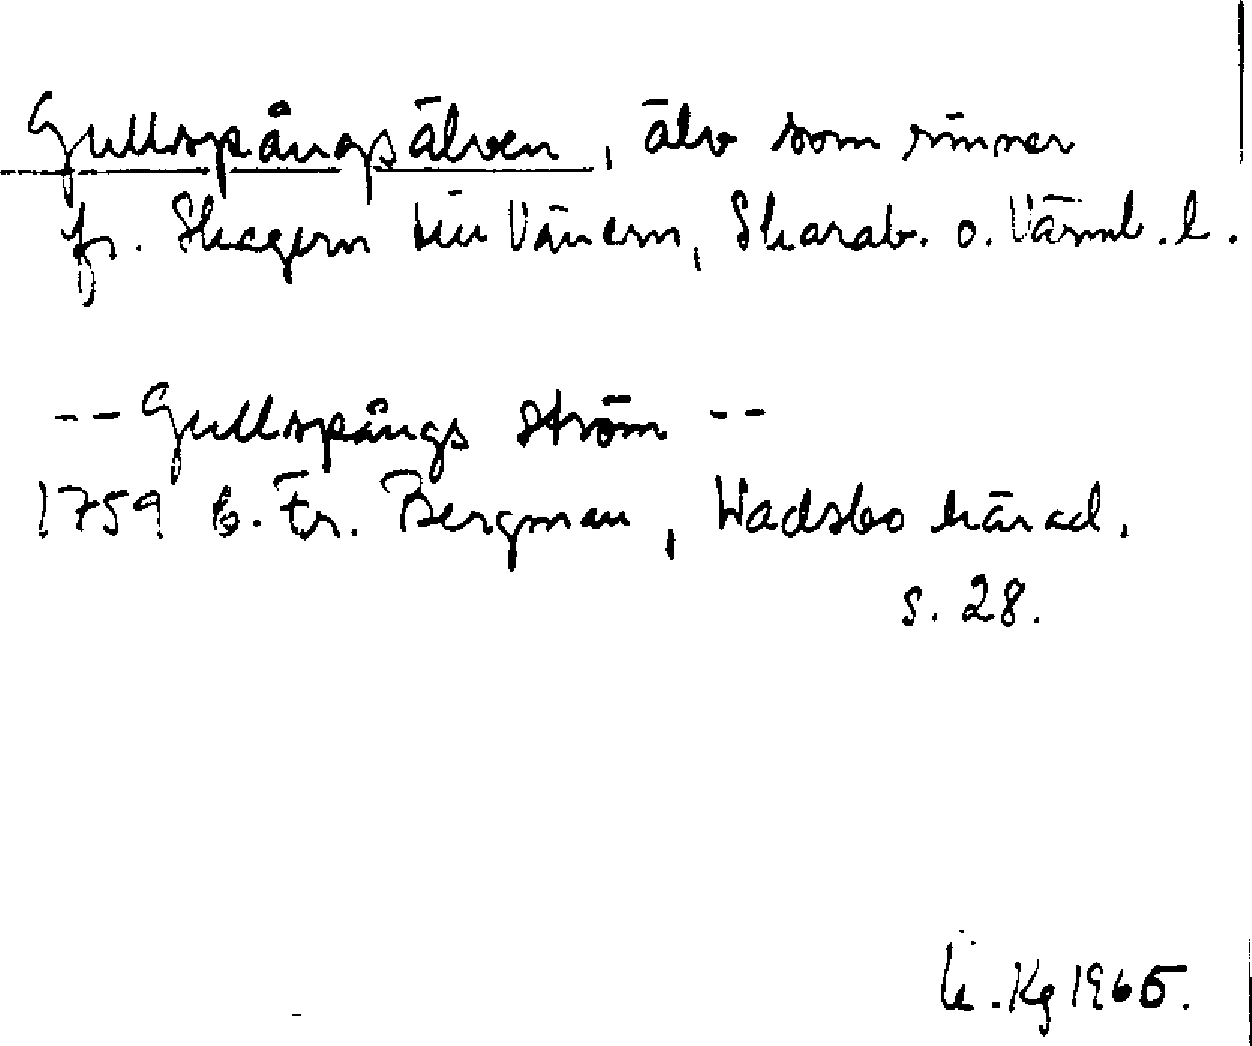 Gullspångsälven, älv som rinner
fr. Skagern till Vänern, Skarab. o. Värml. l.
-- Gullspångs ström --
1759 B. Fr. Bergman, Wadsbo härad.
s. 28.
Kg 1965.